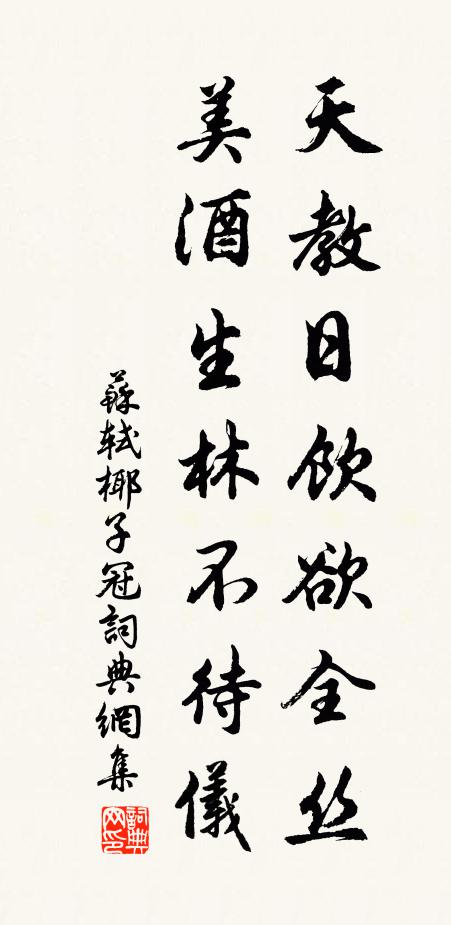 天教日飲欲全丝
美酒生林不待儀
蘇軾椰子冠詞典網集
詞典網印